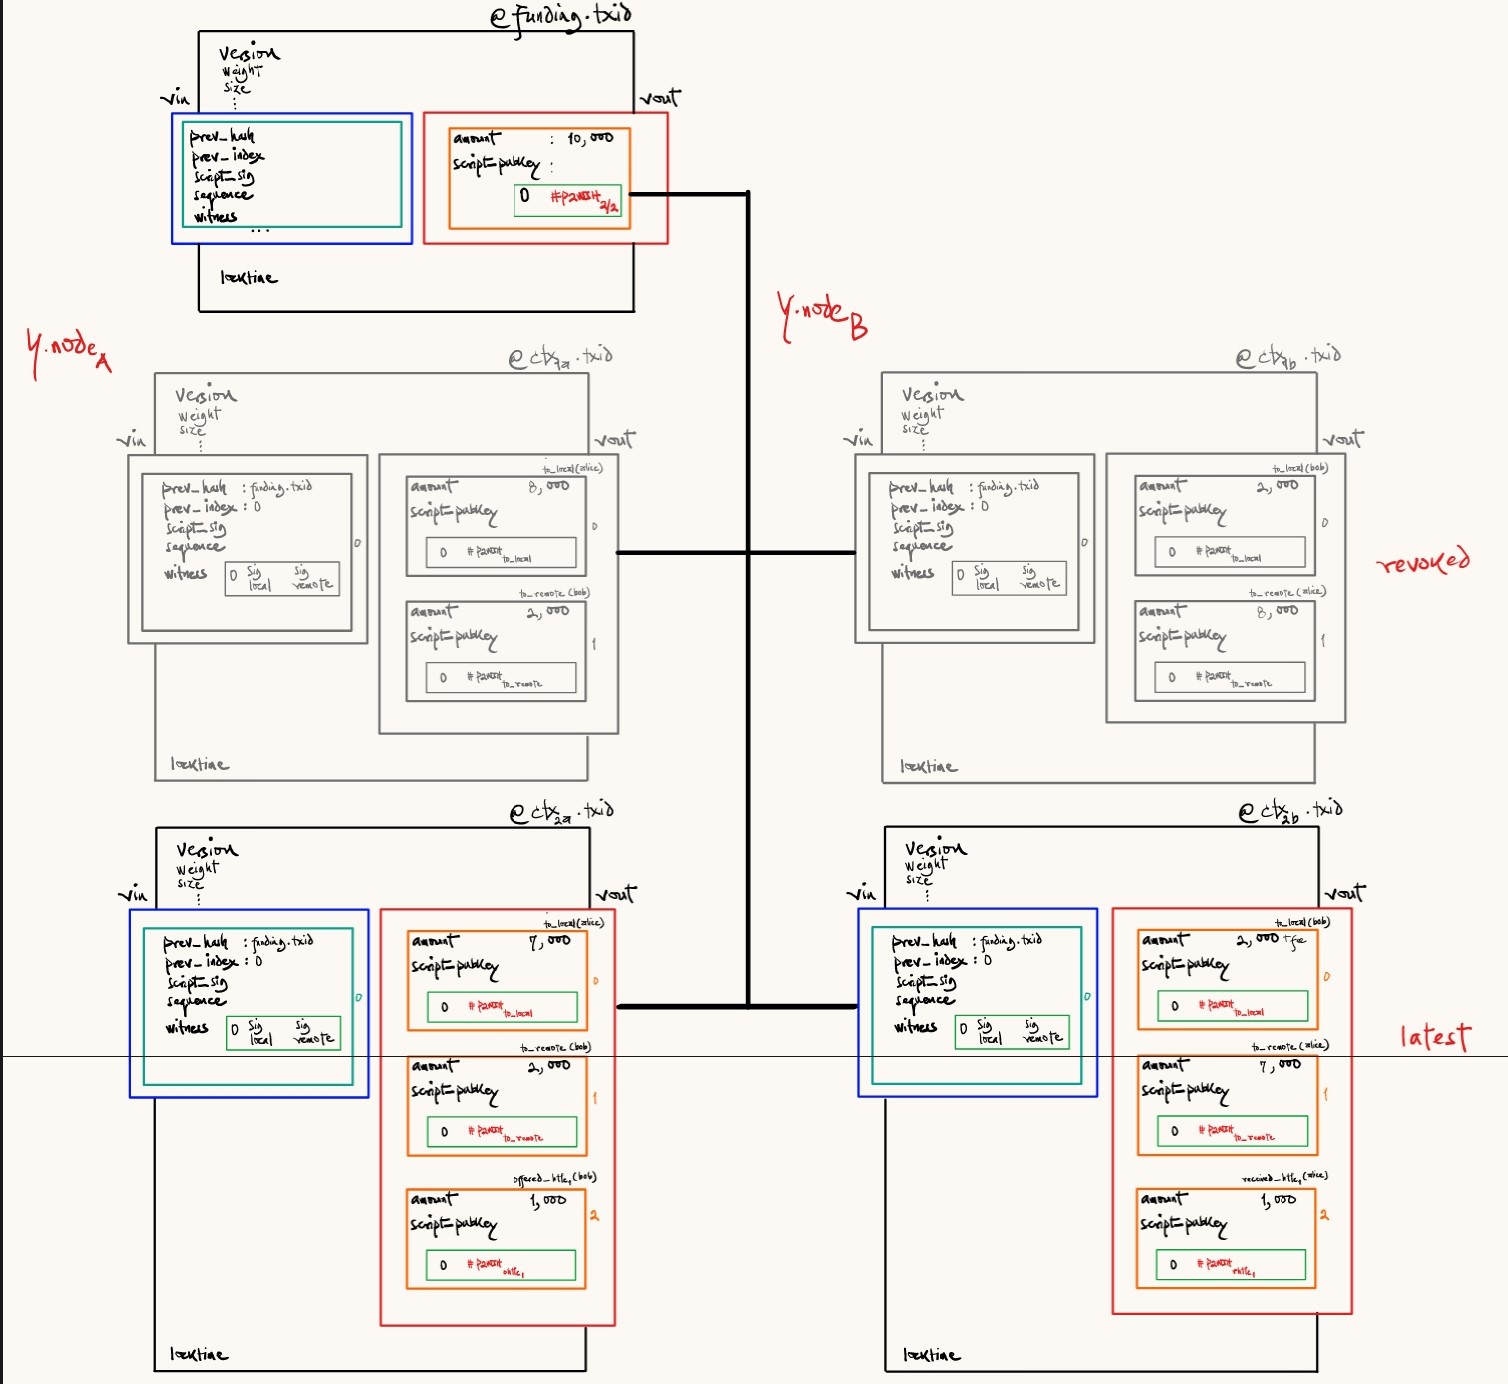 @funding.txid
version
weight
size
vin
vout
prev_hash
prev_index
script_sig
sequence
witness
...
amount : 10,000
script_pubkey :
0 #P2WSH 2/2
locktime
Y.node A
Y.node B
@ctx1a.txid
version
weight
size
vin
vout
prev_hash : funding.txid
prev_index : 0
script_sig
sequence
witness 0 sig local sig remote
0
to_local(alice)
amount 8,000
script_pubkey
0 #P2WSH to_local
0
to_remote (bob)
amount 2,000
script_pubkey
0 #P2WSH to_remote
1
locktime
@ctx1b.txid
version
weight
size
vin
vout
prev_hash : funding.txid
prev_index : 0
script_sig
sequence
witness 0 sig local sig remote
0
to_local(bob)
amount 2,000
script_pubkey
0 #P2WSH to_local
0
to_remote (alice)
amount 8,000
script_pubkey
0 #P2WSH to_remote
1
locktime
revoked
@ctx2a.txid
version
weight
size
vin
vout
prev_hash : funding.txid
prev_index : 0
script_sig
sequence
witness 0 sig local sig remote
0
to_local(alice)
amount 7,000
script_pubkey
0 #P2WSH to_local
0
to_remote (bob)
amount 2,000
script_pubkey
0 #P2WSH to_remote
1
offered_htlc1 (bob)
amount 1,000
script_pubkey
0 #P2WSH ohtlc1
2
locktime
@ctx2b.txid
version
weight
size
vin
vout
prev_hash : funding.txid
prev_index : 0
script_sig
sequence
witness 0 sig local sig remote
0
to_local(bob)
amount 2,000 +fee
script_pubkey
0 #P2WSH to_local
0
to_remote (alice)
amount 7,000
script_pubkey
0 #P2WSH to_remote
1
received_htlc1 (alice)
amount 1,000
script_pubkey
0 #P2WSH rhtlc1
2
locktime
latest